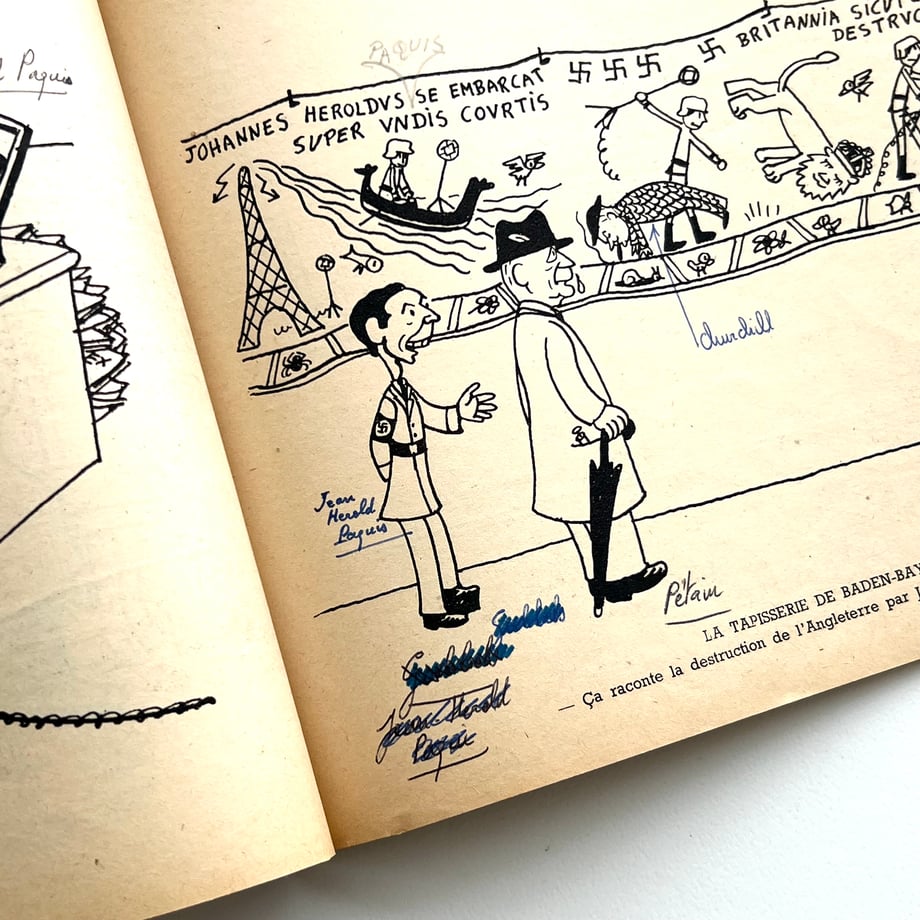 Paquis
PAQUIS
JOHANNES HEROLDVS SE EMBARCAT
SUPER VNDIS COVRTIS
BRITANNIA SICVT
DESTRVC
churchill
Jean
Herold
Paquis
Pétain
Jean Herold
Paquis
LA TAPISSERIE DE BADEN-BAY
— Ça raconte la destruction de l'Angleterre par J